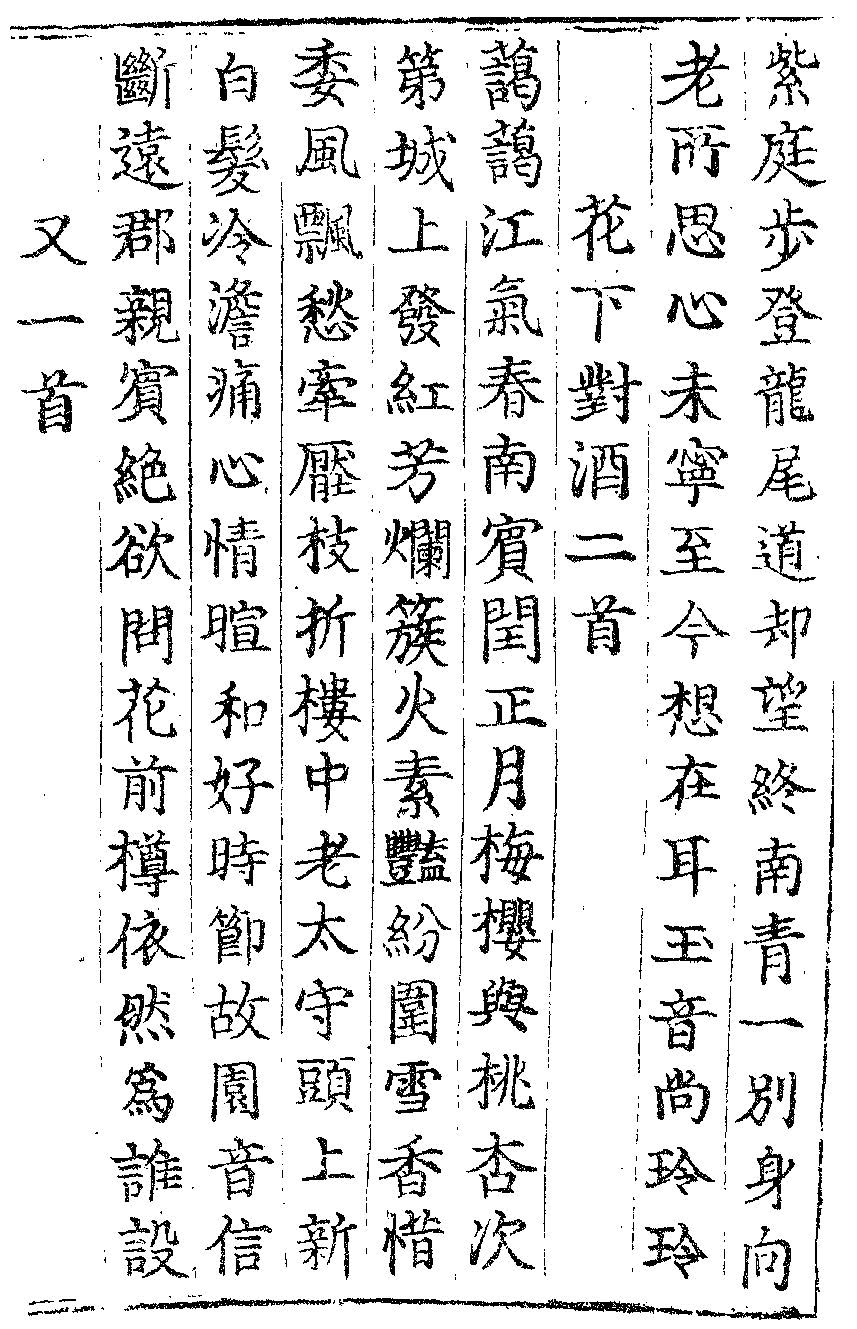 紫庭步登龍尾道却望終南青一別身向
老所思心未寧至今想在耳玉音尚玲玲
花下對酒二首
藹藹江氣春南賓閏正月梅櫻與桃杏次
第城上發紅芳爛簇火素豔紛圍雪香惜
委風飄愁牽壓枝折樓中老太守頭上新
白髮冷澹病心情暄和好時節故園音信
斷遠郡親賓絶欲問花前樽依然爲誰設
又一首